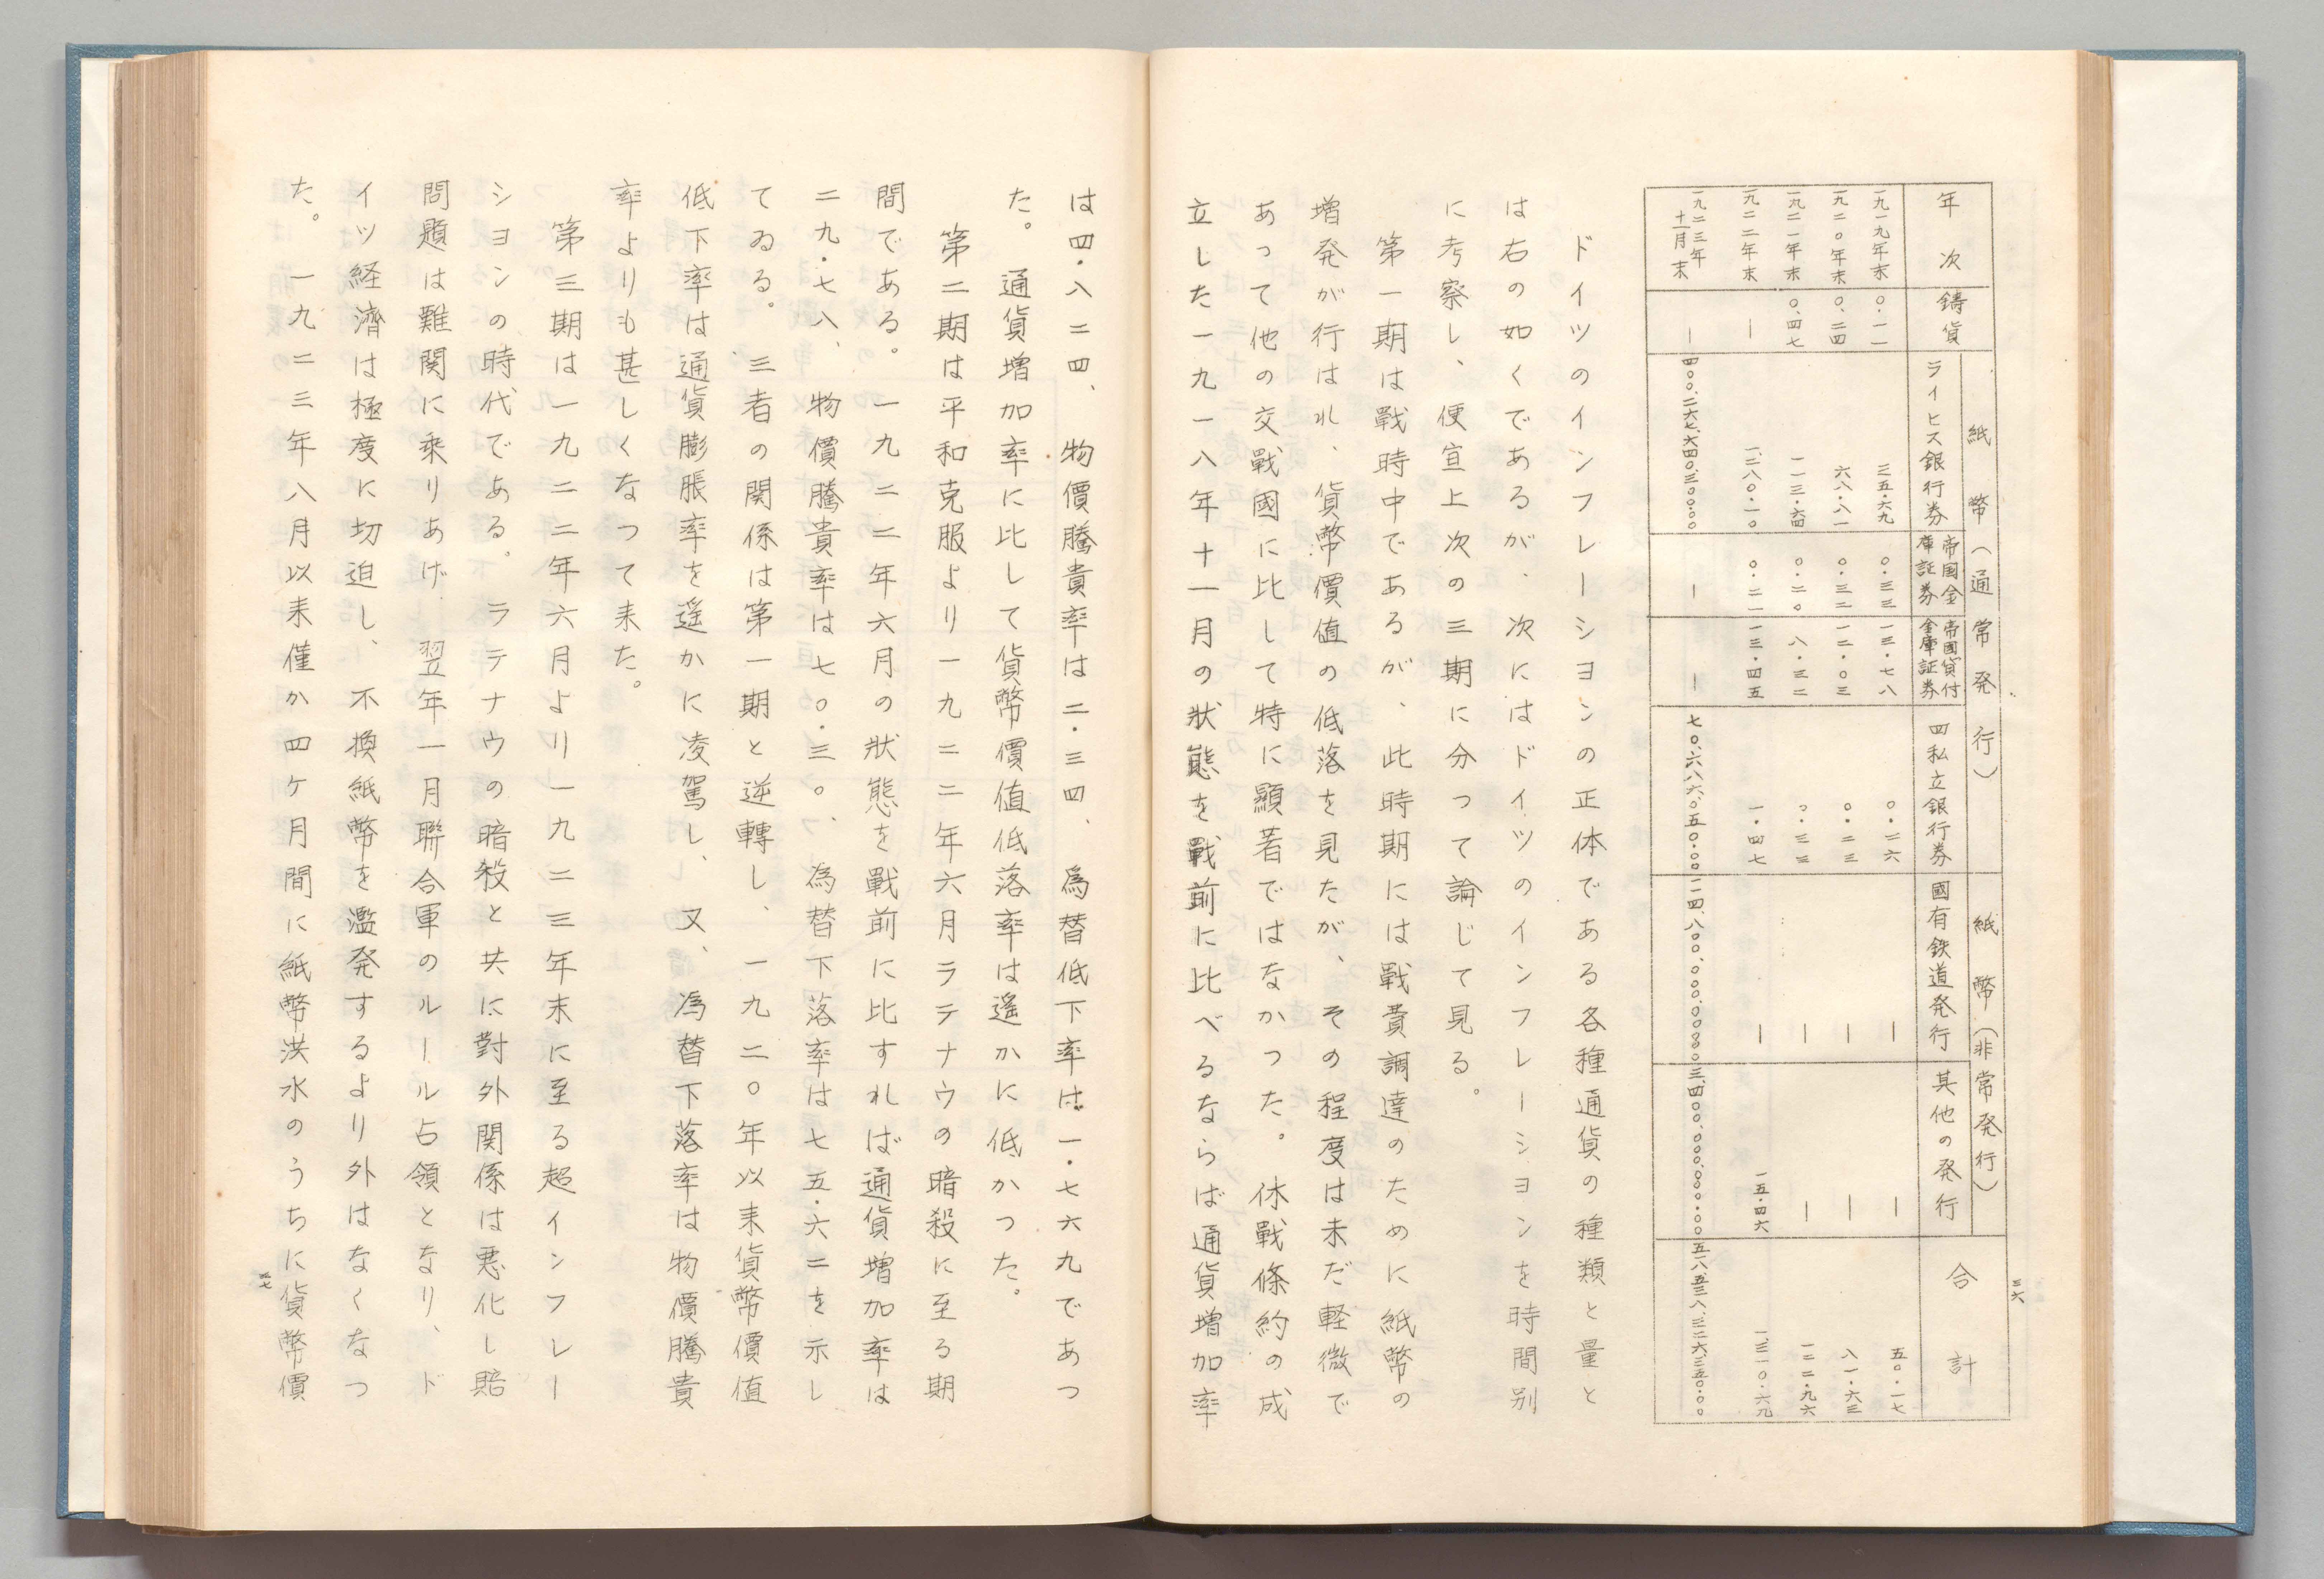 三六
年次
鋳貨
紙幣(通常発行)
ライヒス銀行券
帝国金庫証券
帝國貸付金庫証券
四私立銀行券
紙幣(非常発行)
國有鉄道発行
其他の発行
合計
一九一九年末 〇・一一 三五・六九 〇・三三 一三・七八 〇・二六 — — 五〇・一七
一九二〇年末 〇・二四 六八・八一 〇・三二 一二・〇三 〇・二三 — — 八一・六三
一九二一年末 〇・四七 一一三・六四 〇・二〇 八・三二 〇・三三 — — 一二二・九六
一九二二年末 — 一、二八〇・一〇 〇・二一 一三・四五 一・四七 — 一五・四六 一、三一〇・六九
一九二三年十一月末 — 四〇〇、二六七、六四〇、三〇〇・〇〇 — —
ドイツのインフレーシヨンの正体である各種通貨の種類と量と
は右の如くであるが、次にはドイツのインフレーシヨンを時間別
に考察し、便宜上次の三期に分つて論じて見る。
第一期は戰時中であるが、此時期には戰費調達のために紙幣の
増発が行はれ、貨幣價值の低落を見たが、その程度は未だ軽微で
あって他の交戰國に比して特に顯著ではなかつた。休戰條約の成
立した一九一八年十一月の狀態を戰前に比べるならば通貨増加率
は四・八二四、物價騰貴率は二・三四、為替低下率は一・七六九であつ
た。通貨増加率に比して貨幣價值低落率は遙かに低かつた。
第二期は平和克服より一九二二年六月ラテナウの暗殺に至る期
間である。一九二二年六月の狀態を戰前に比すれば通貨増加率は
二九・七八、物價騰貴率は七〇・三〇、為替下落率は七五・六二を示し
てゐる。三者の関係は第一期と逆轉し、一九二〇年以来貨幣價值
低下率は通貨膨脹率を遥かに凌駕し、又、為替下落率は物價騰貴
率よりも甚しくなつて来た。
第三期は一九二二年六月より一九二三年末に至る超インフレー
シヨンの時代である。ラテナウの暗殺と共に對外関係は悪化し賠
問題は難関に乘りあげ、翌年一月聯合軍のルール占領となり、ド
イツ経濟は極度に切迫し、不換紙幣を濫発するより外はなくなつ
た。一九二三年八月以来僅か四ケ月間に紙幣洪水のうちに貨幣價
三七